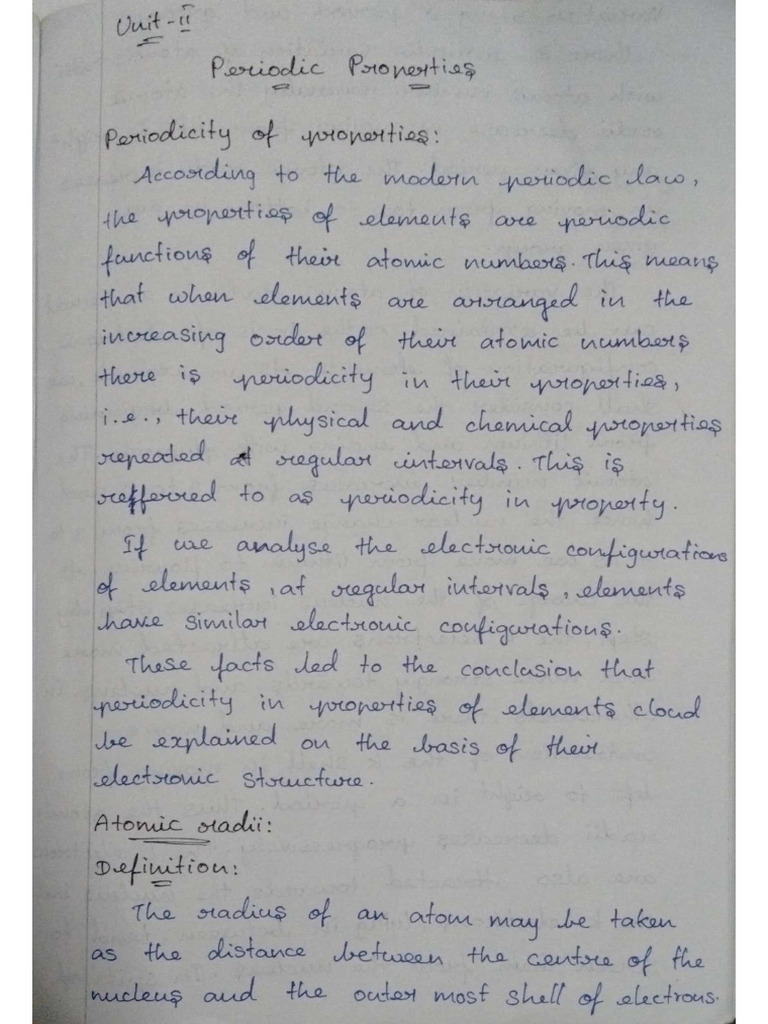 Unit-II
Periodic Properties
Periodicity of properties:
According to the modern periodic law,
the properties of elements are periodic
functions of their atomic numbers. This means
that when elements are arranged in the
increasing order of their atomic numbers
there is periodicity in their properties,
i.e., their physical and chemical properties
repeated at regular intervals. This is
refferred to as periodicity in property.
If we analyse the electronic configurations
of elements, at regular intervals, elements
have similar electronic configurations.
These facts led to the conclusion that
periodicity in properties of elements cloud
be explained on the basis of their
electronic structure.
Atomic radii:
Definition:
The radius of an atom may be taken
as the distance between the centre of the
nucleus and the outer most shell of electrons.